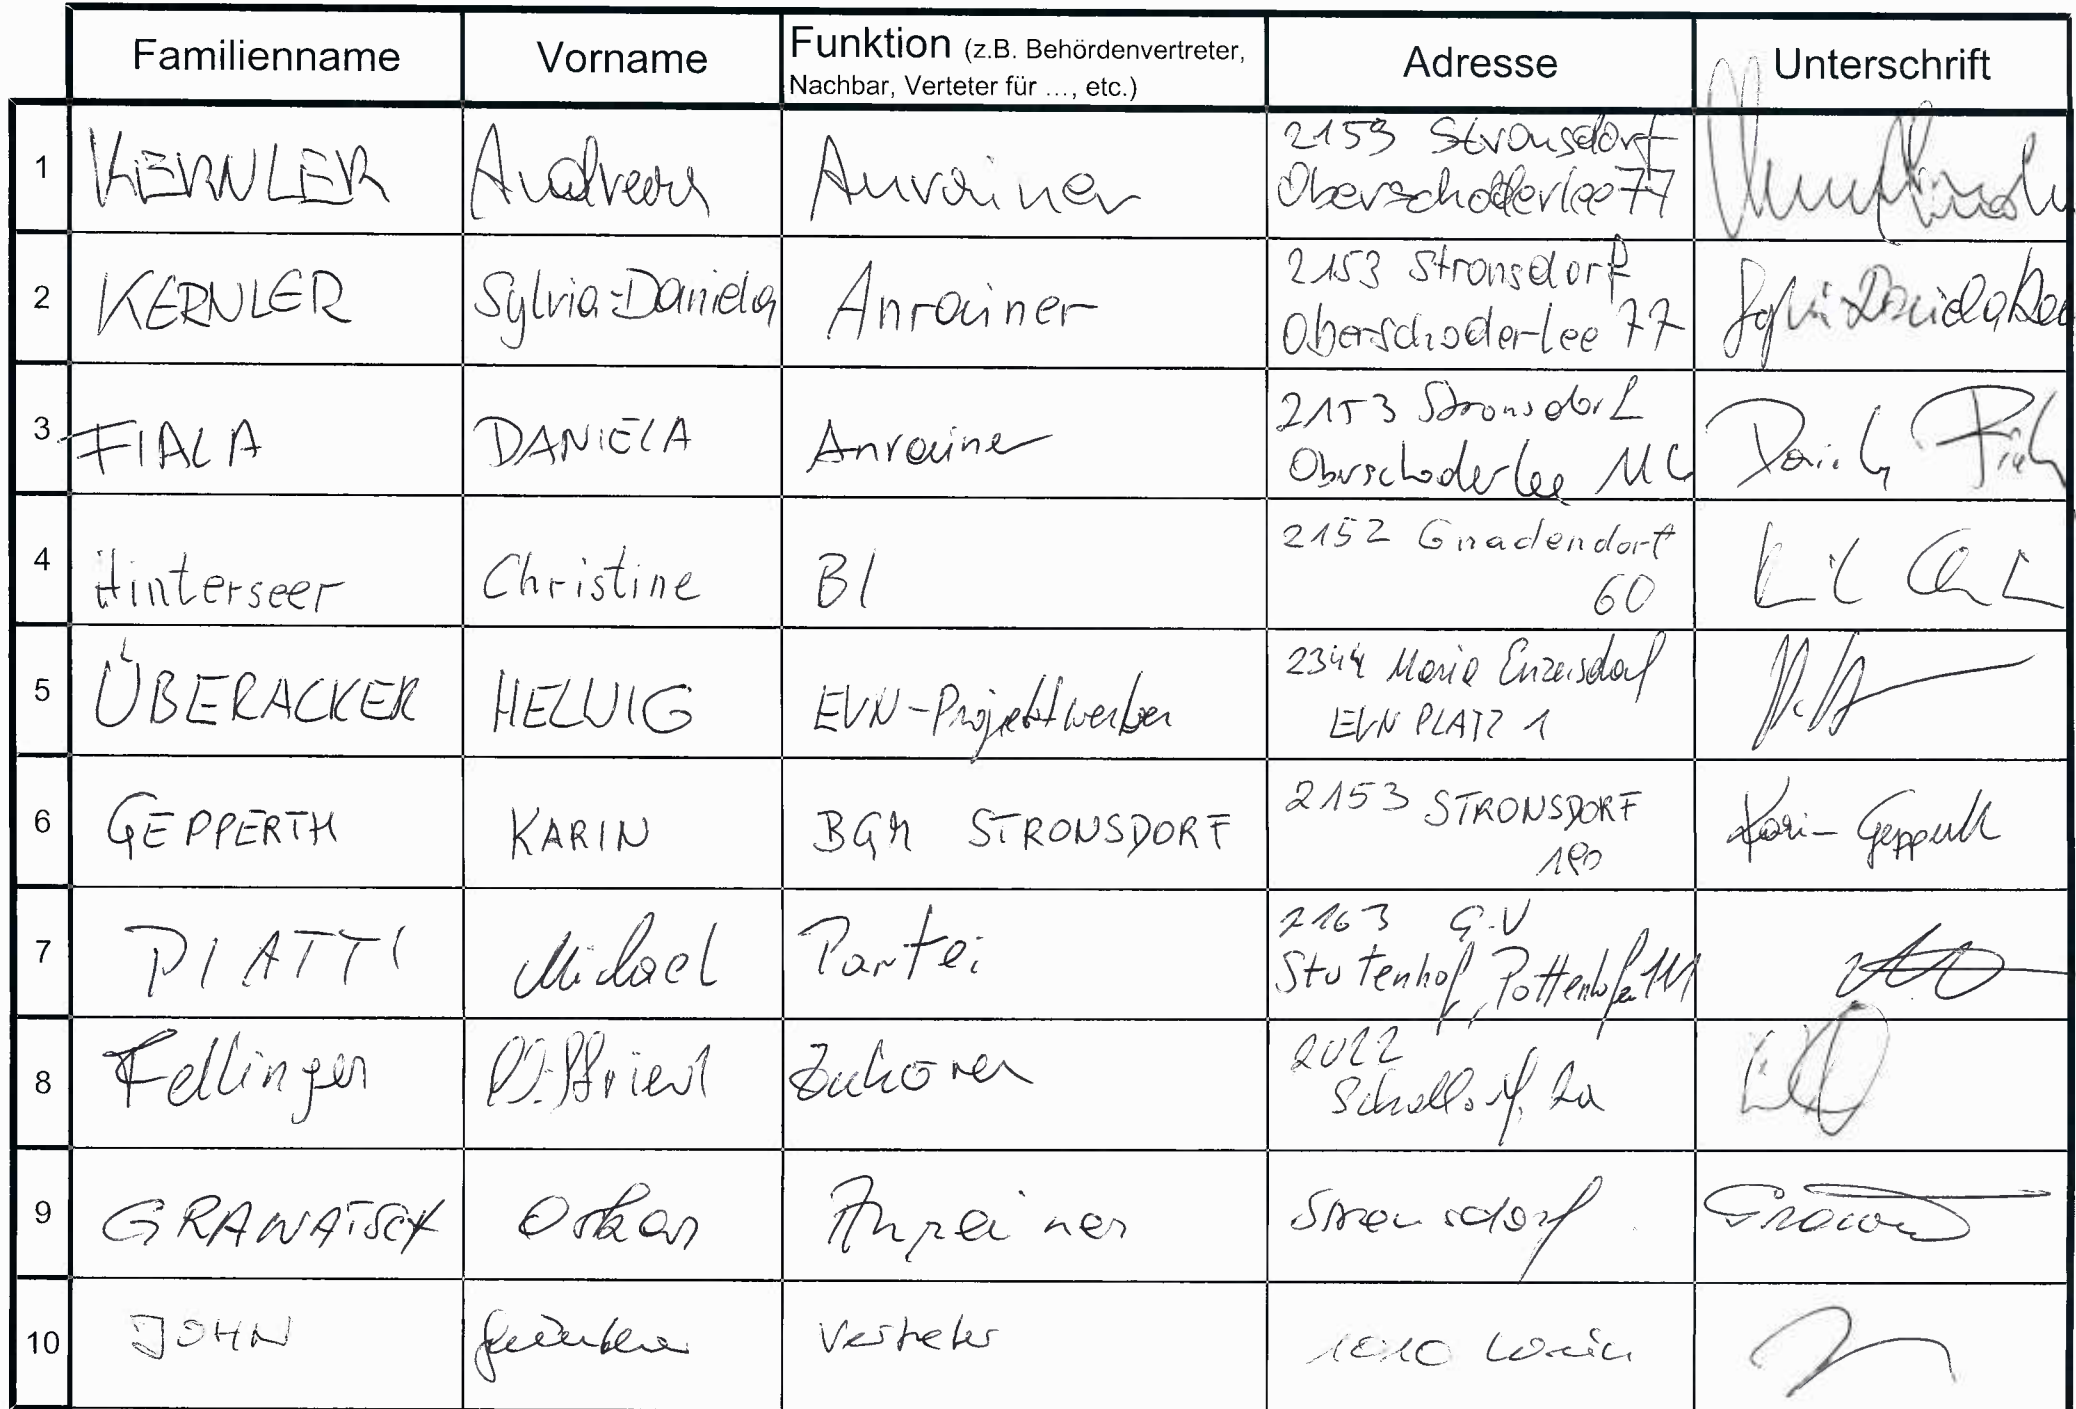 Familienname Vorname Funktion (z.B. Behördenvertreter, Nachbar, Verteter für ..., etc.) Adresse Unterschrift
1 KERNLER Andreas Anrainer 2153 Stronsdorf
Oberschoderlee 77
2 KERNLER Sylvia-Daniela Anrainer 2153 Stronsdorf
Oberschoderlee 77
3 FIALA DANIELA Anrainer 2153 Stronsdorf
Oberschoderlee
4 Hinterseer Christine BI 2152 Gnadendorf
60
5 ÜBERACKER HELWIG EVN-Projektwerber 2344 Maria Enzersdorf
EVN PLATZ 1
6 GEPPERTH KARIN BGM STRONSDORF 2153 STRONSDORF Karin Gepperth
190
7 PIATTI Michael Partei 2163 G.V
Stutenhof, Pottenhofen 111
8 Fellinger Zuhörer 2022
2a
9 GRANATSCH Oskar Anrainer Stronsdorf
10 JOHN Günther Vertreter 1010 Wien